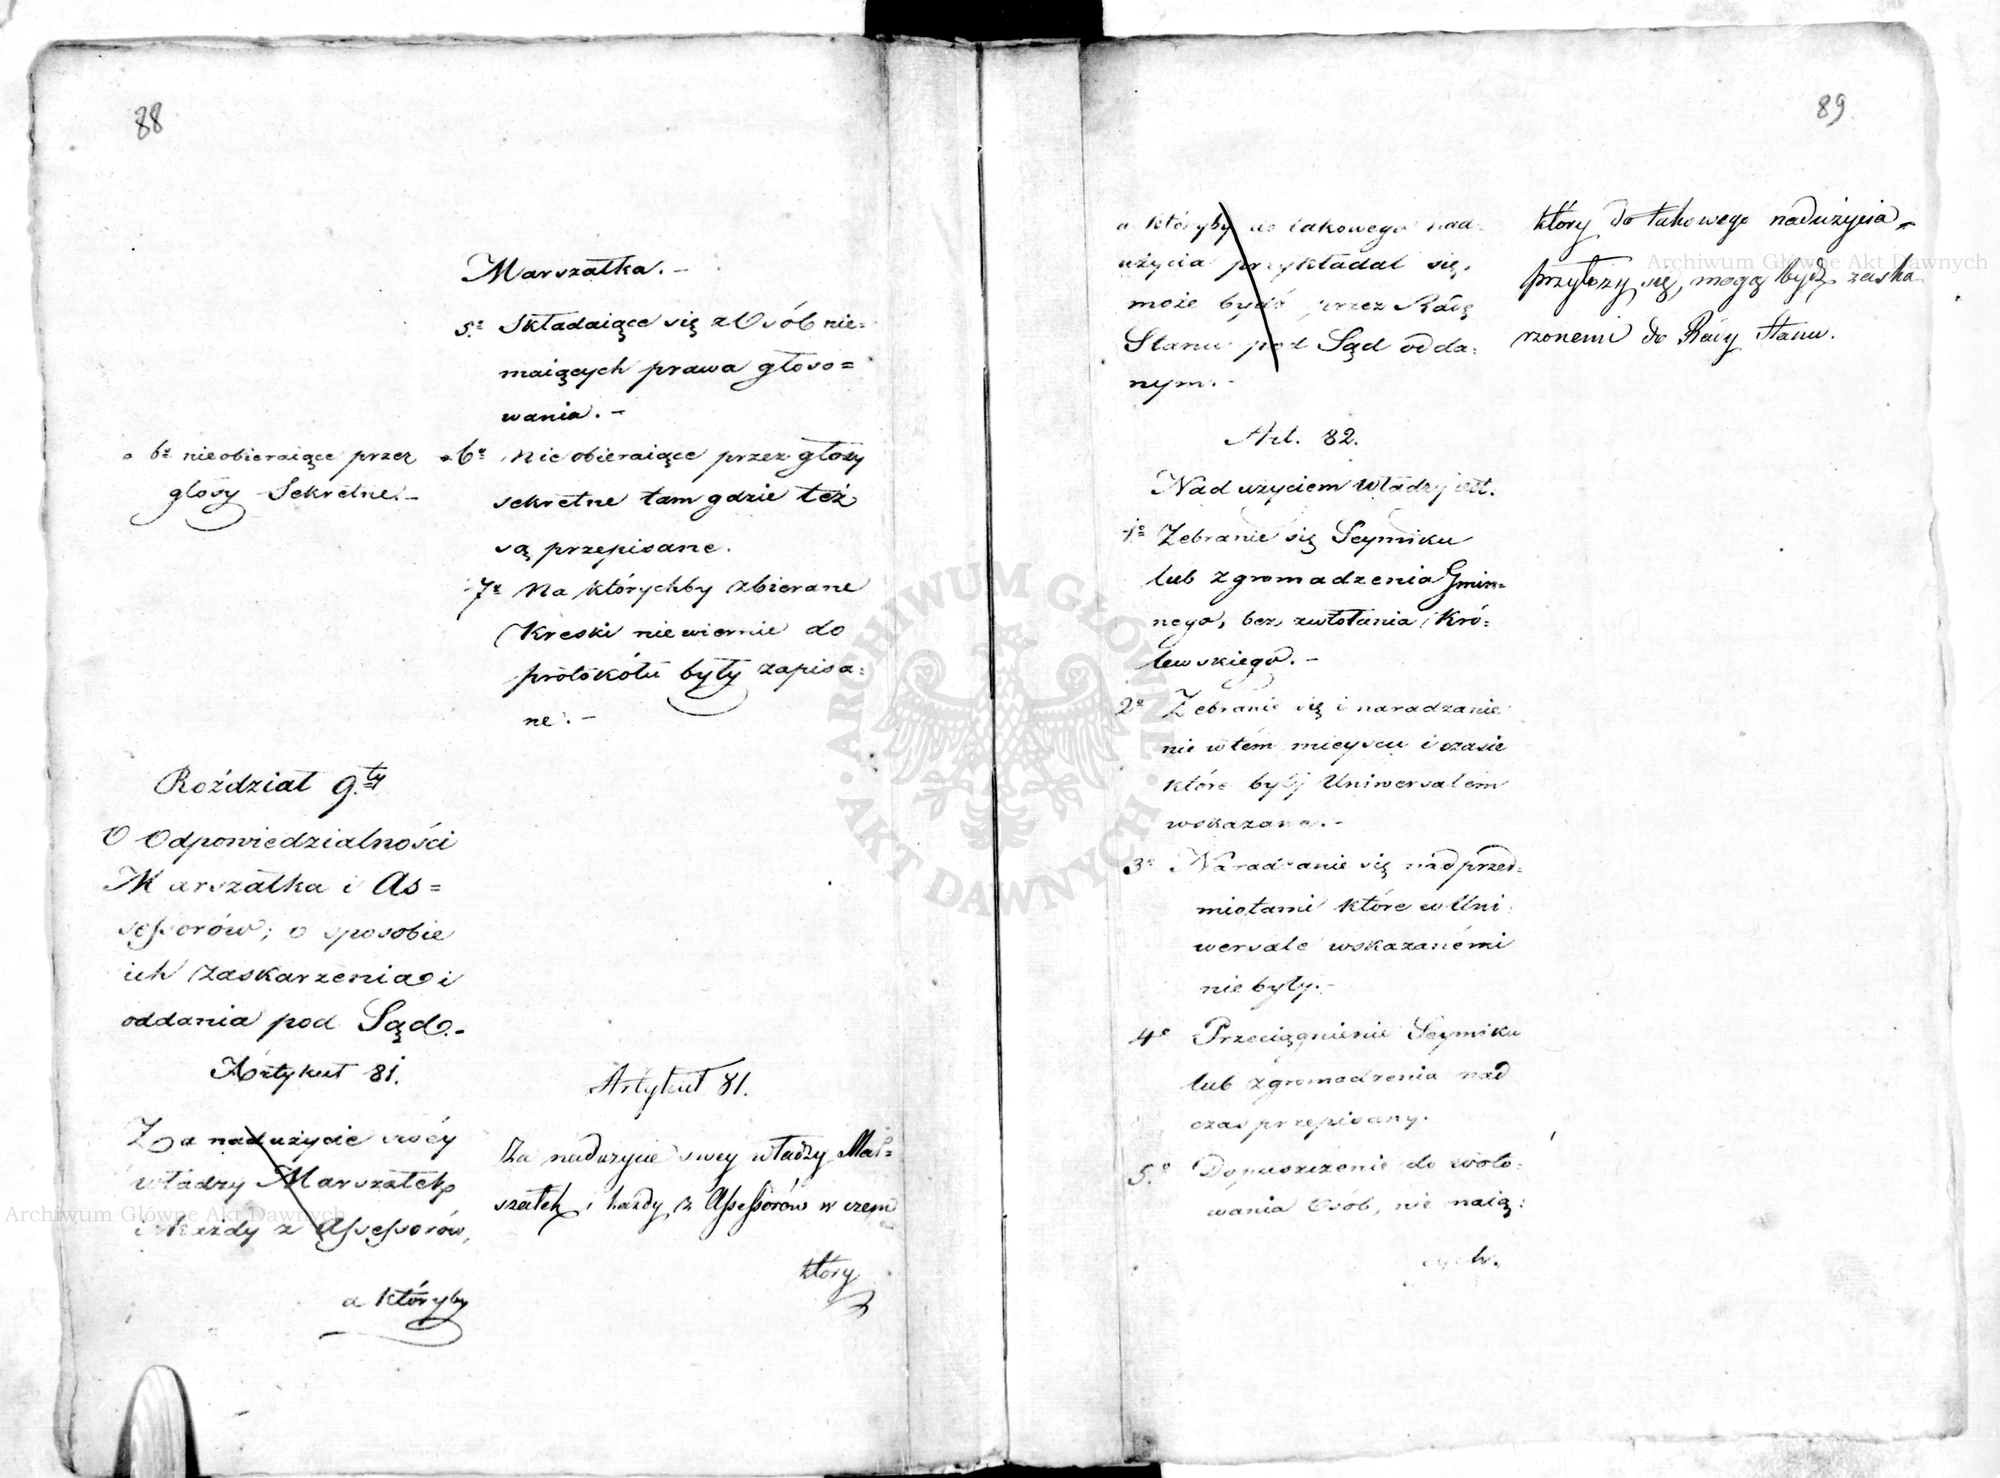 88
Marszałka. -
5º Składaiące się z Osób nie=
maiących prawa głoso=
wania. -
6º nieobieraiące przez
głosy Sekretne. -
6º Nieobieraiące przez głosy
sekretne tam gdzie też
są przepisane.
7º Na którychby zbierane
Kreski niewiernie do
protokółu były zapisa=
ne. -
Roździał 9.ty
O Odpowiedzialności
Marszałka i As=
sessorów; o sposobie
ich zaskarzenia i
oddania pod Sąd. -
Artykuł 81.
Za nadużycie swéy
władzy Marszałek
i każdy z Assessorów,
a któryby
Artykuł 81.
Za nadużycie swey władzy Mar=
szałek i każdy z Assessorów w czem
który
89
a któryby do takowego nad=
użycia przykładał się,
może bydź przez Radę
Stanu pod Sąd odda=
nym. -
który do takowego nadużycia
przyłoży się, mogą bydź zaska
rzonemi do Rady Stanu.
Art. 82.
Nadużyciem Władzy iest.
1º Zebranie się Seymiku
lub zgromadzenia Gmin=
nego, bez zwołania Kró=
lewskiego. -
2º Zebranie się i naradzanie
nie w tém mieyscu i czasie
które były Uniwersałem
wskazane. -
3º Naradzanie się nad przed=
miotami które w Uni=
wersale wskazanémi
nie były. -
4º Przeciągnienie Seymiku
lub zgromadzenia nad
czas przepisany.
5º Dopuszczenie do woto=
wania Osób, nie maią=
cych.
ARCHIWUM GŁÓWNE AKT DAWNYCH
Archiwum Główne Akt Dawnych
Archiwum Główne Akt Dawnych